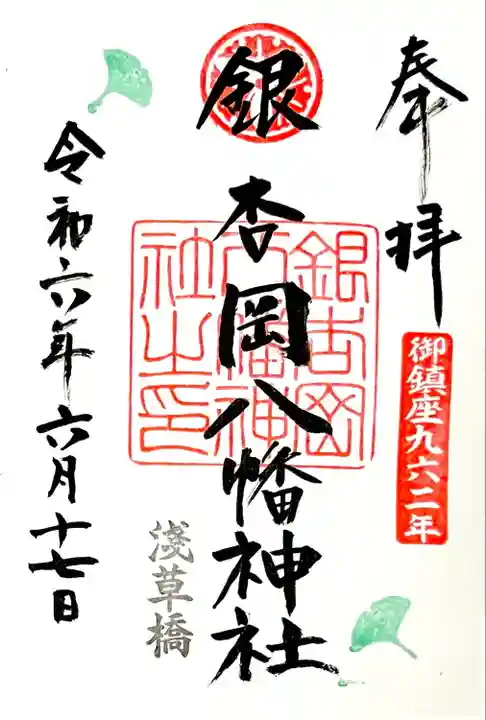 奉拝
御鎮座九六二年
銀杏岡八幡神社
銀杏岡八幡神社之印
淺草橋
令和六年六月十七日